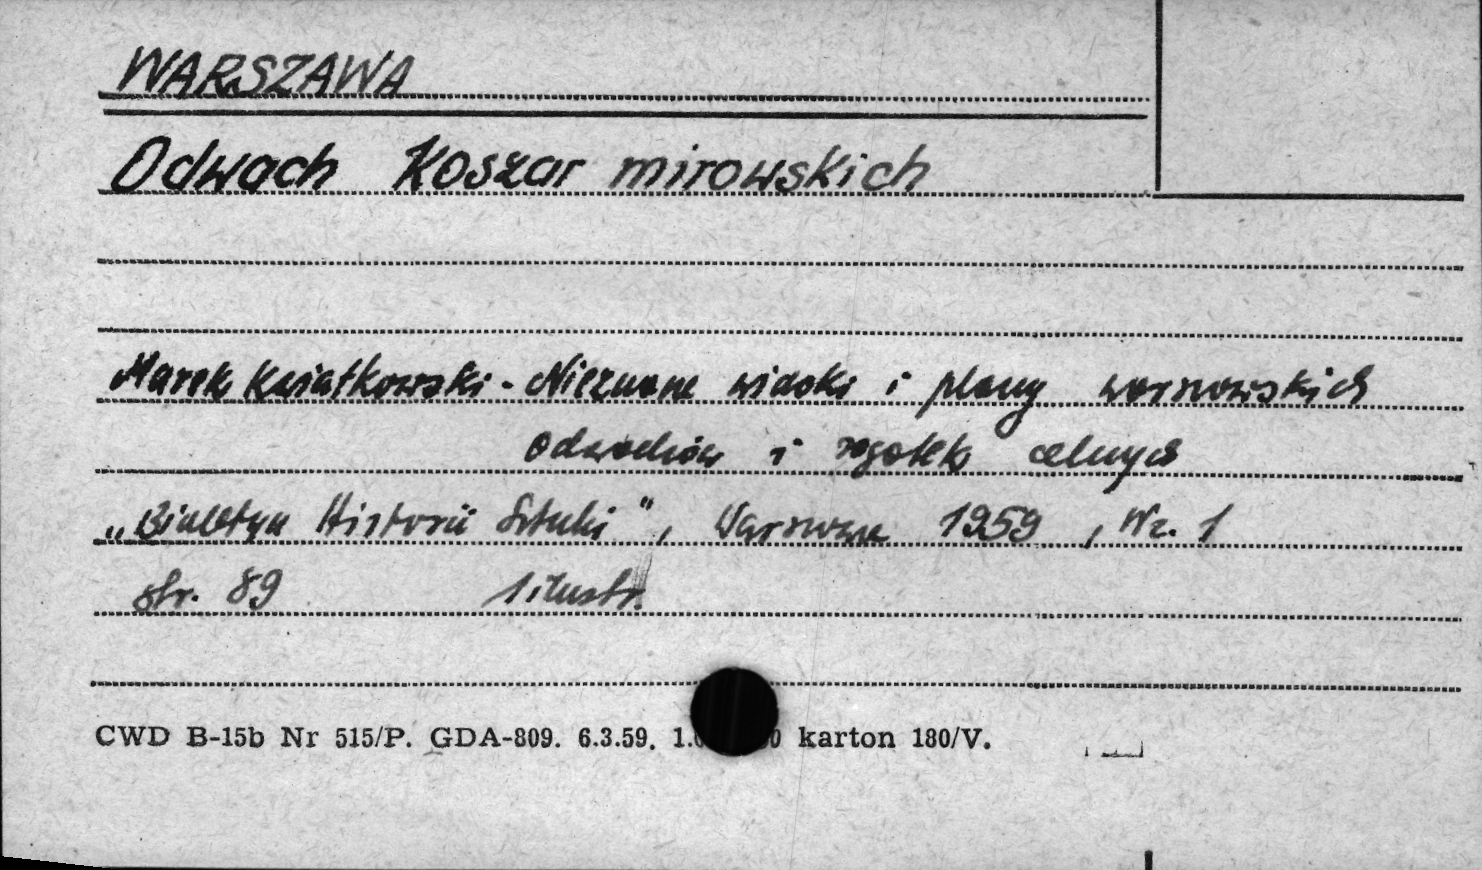 WARSZAWA
Odwach Koszar mirowskich
Marek Kwiatkowski - Nieznane widoki i plany warszawskich
odwachów i rogatek celnych
„Biuletyn Historii Sztuki", Warszawa 1959, Nr. 1
str. 89 1 ilustr.
CWD B-15b Nr 515/P. GDA-809. 6.3.59. karton 180/V.